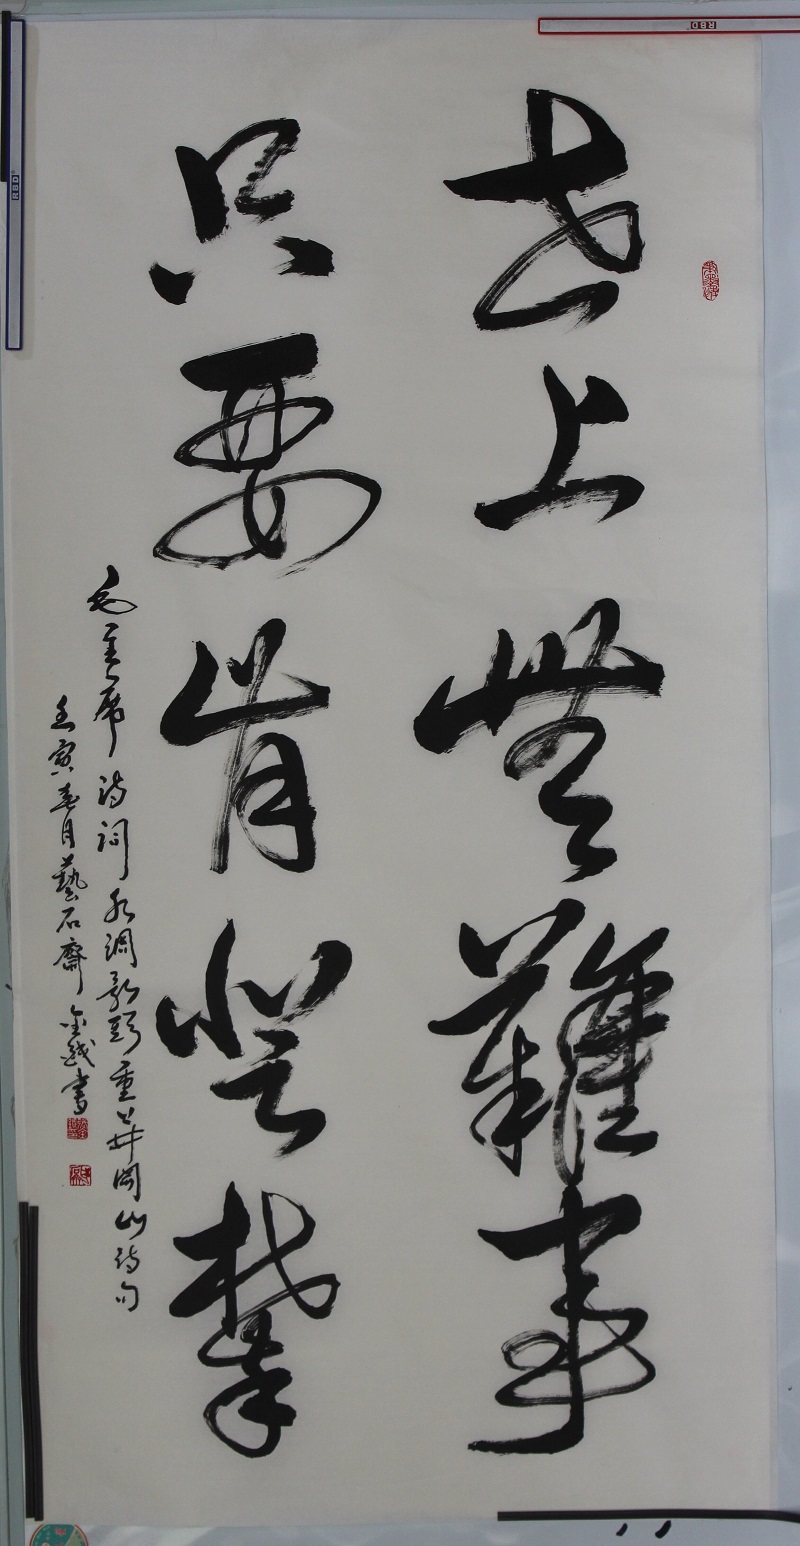 世上無難事
只要肯登攀
毛主席诗词水調歌頭重上井岡山诗句
壬寅春月藝石齋金战書
RBD
RBD